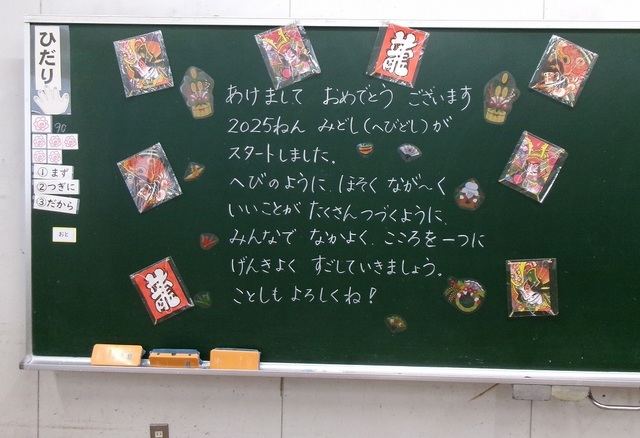 ひだり
90
①まず
②つぎに
③だから
おと
龍
龍
あけまして おめでとう ございます
2025ねん みどし(へびどし)が
スタートしました。
へびのように、ほそく なが〜く
いいことが たくさんつづくように、
みんなで なかよく、こころを一つに
げんきよく すごしていきましょう。
ことしも よろしくね!